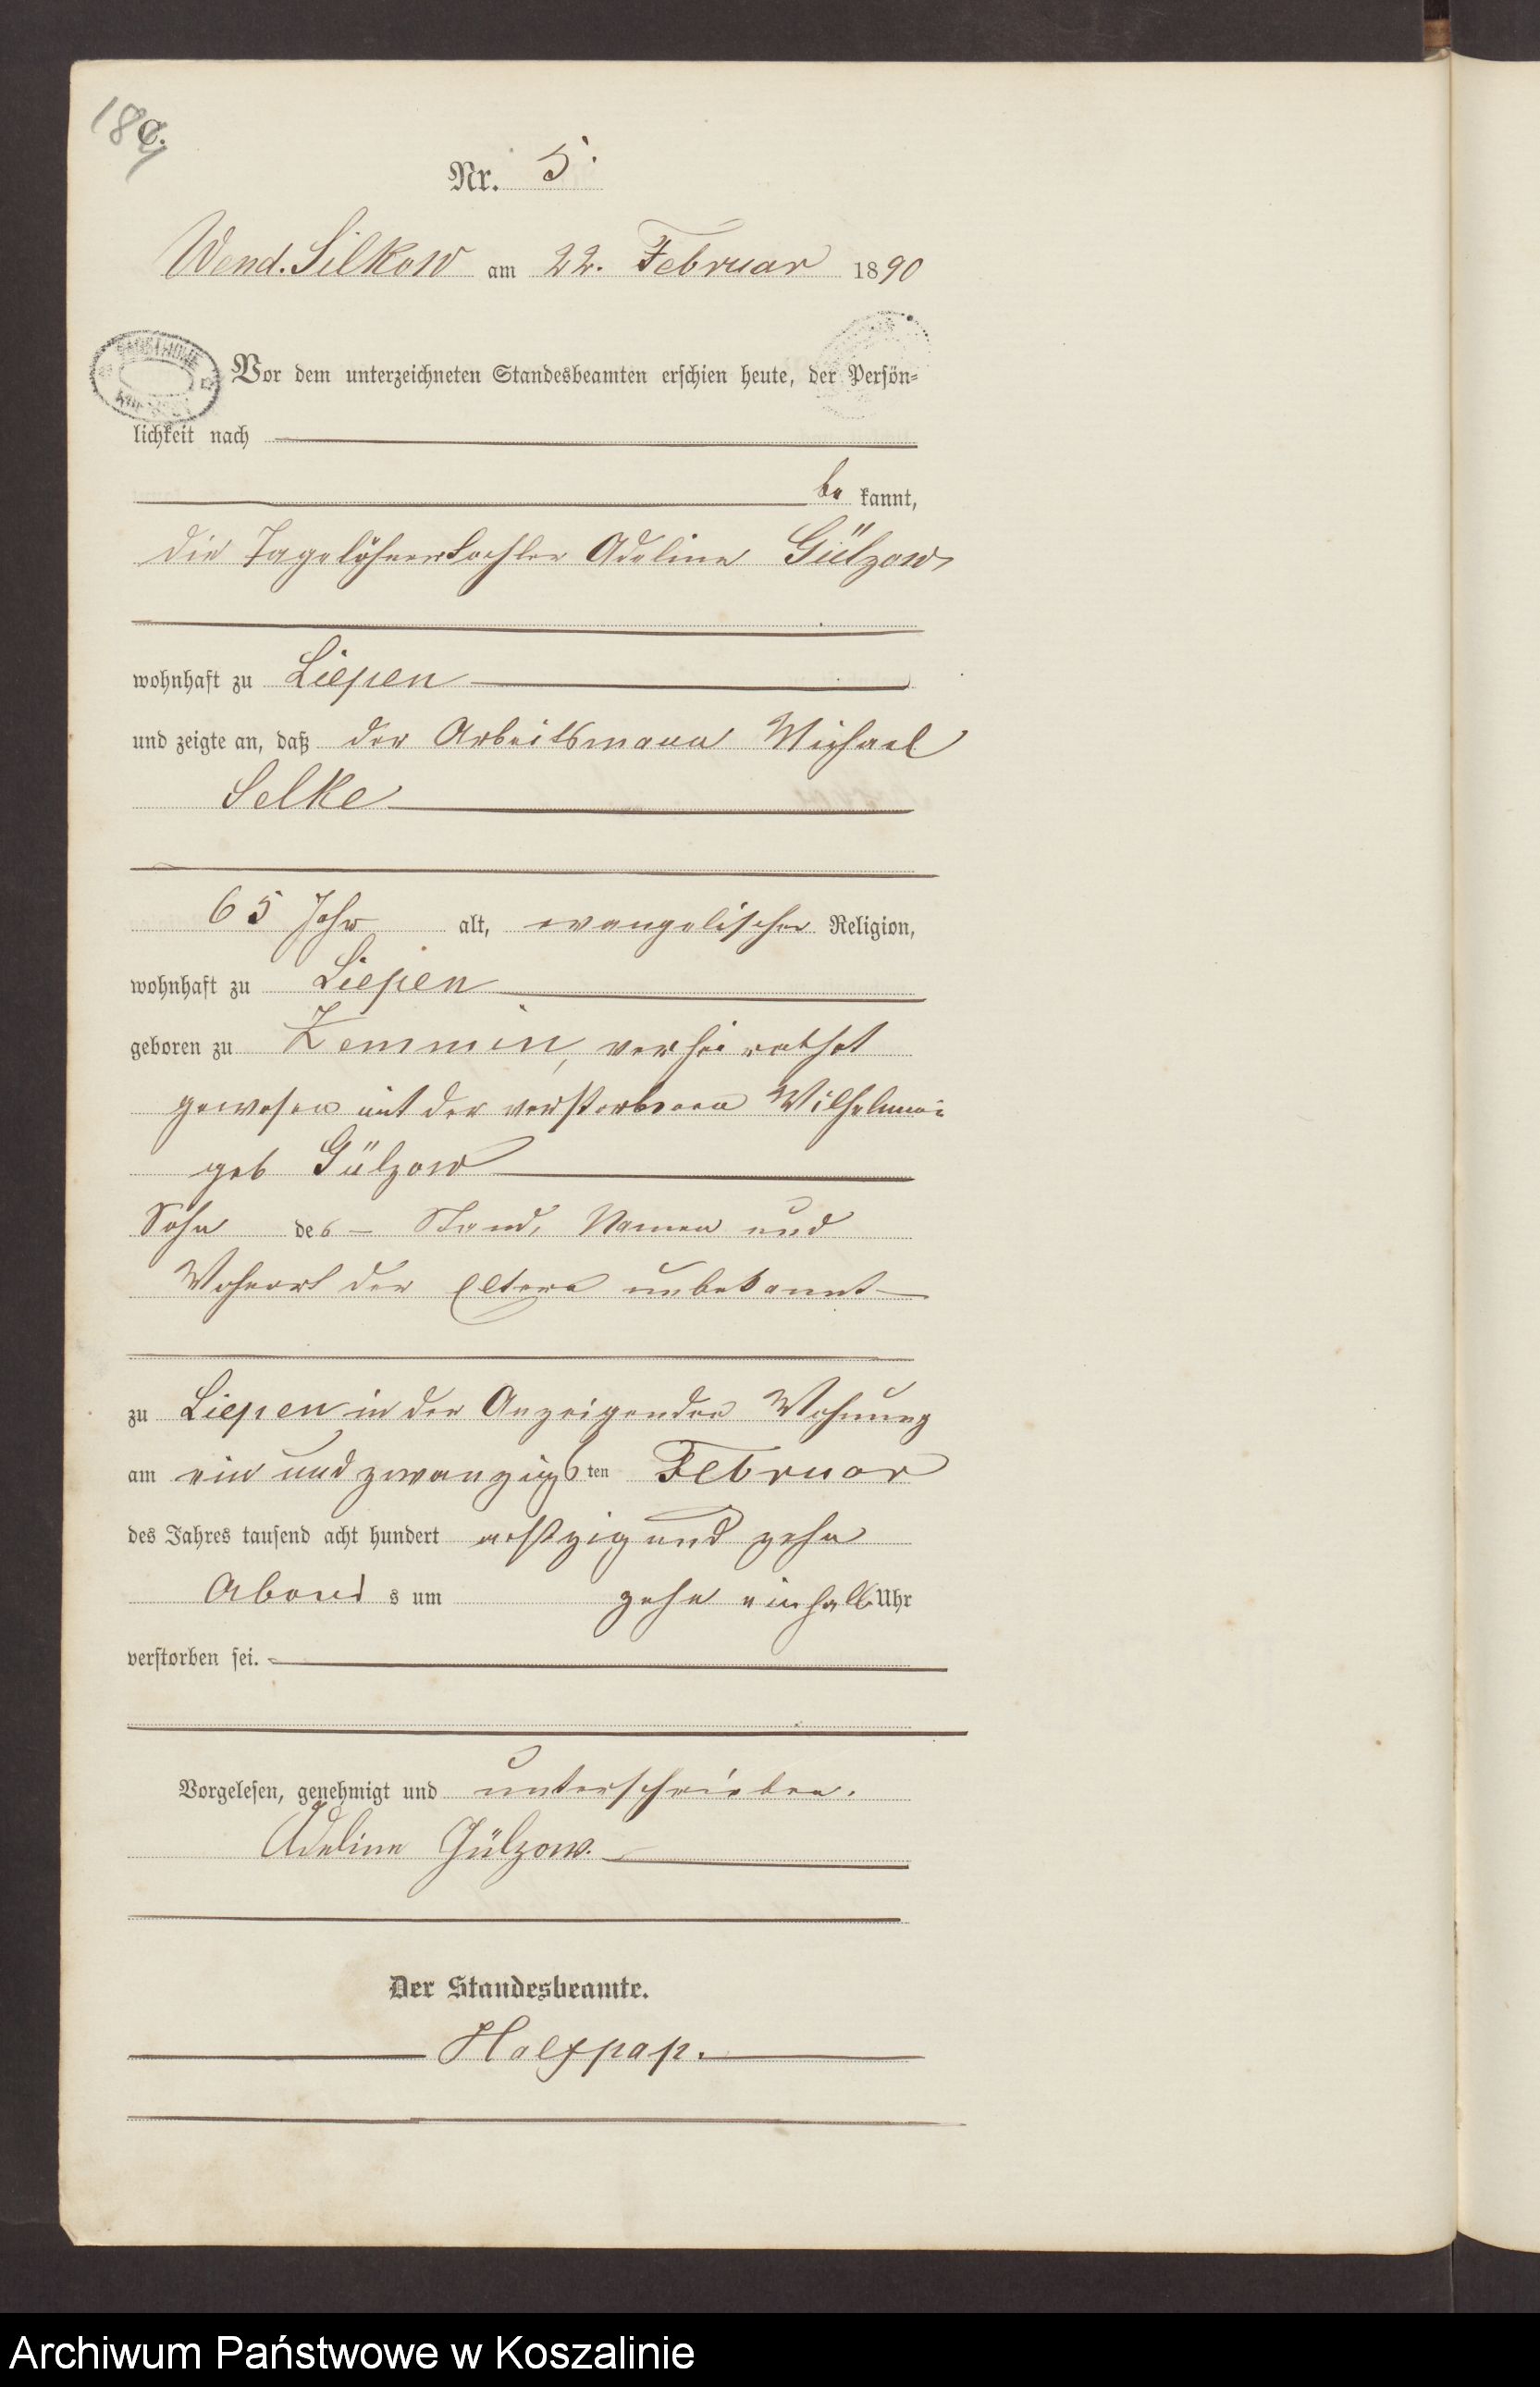 C.
Nr. 5.
Wend. Silkow am 22. Februar 1890
Vor dem unterzeichneten Standesbeamten erschien heute, der Persön-
lichkeit nach
be kannt,
die Tagelöhnertochter Adeline Gülzow
wohnhaft zu Liepen
und zeigte an, daß der Arbeitsmann Michael
Selke
65 Jahr alt, evangelischer Religion,
wohnhaft zu Liepen
geboren zu Zemmin, verheirathet
gewesen mit der verstorbenen Wilhelmine
geb Gülzow
Sohn des – Stand, Namen und
Wohnort der Eltern unbekannt –
zu Liepen in der Anzeigenden Wohnung
am ein und zwanzigsten Februar
des Jahres tausend acht hundert achtzig und zehn
Abend s um zehn einhalb Uhr
verstorben sei.
Vorgelesen, genehmigt und unterschrieben.
Adeline Gülzow.
Der Standesbeamte.
Halfpap.
Archiwum Państwowe w Koszalinie